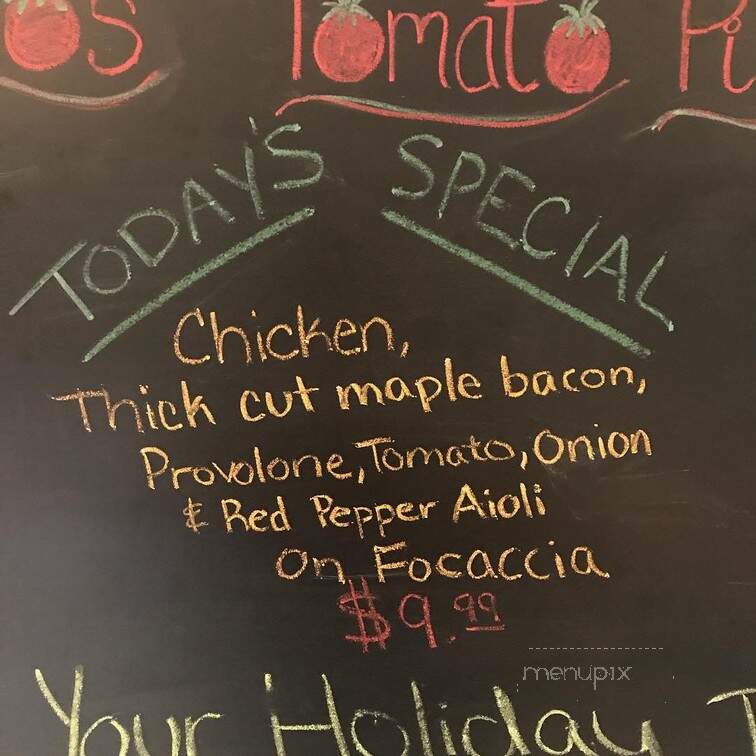 os Tomato Pi
TODAY'S SPECIAL
Chicken,
Thick cut maple bacon,
Provolone, Tomato, Onion
& Red Pepper Aioli
on Focaccia
$9.99
menupix
Your Holiday T